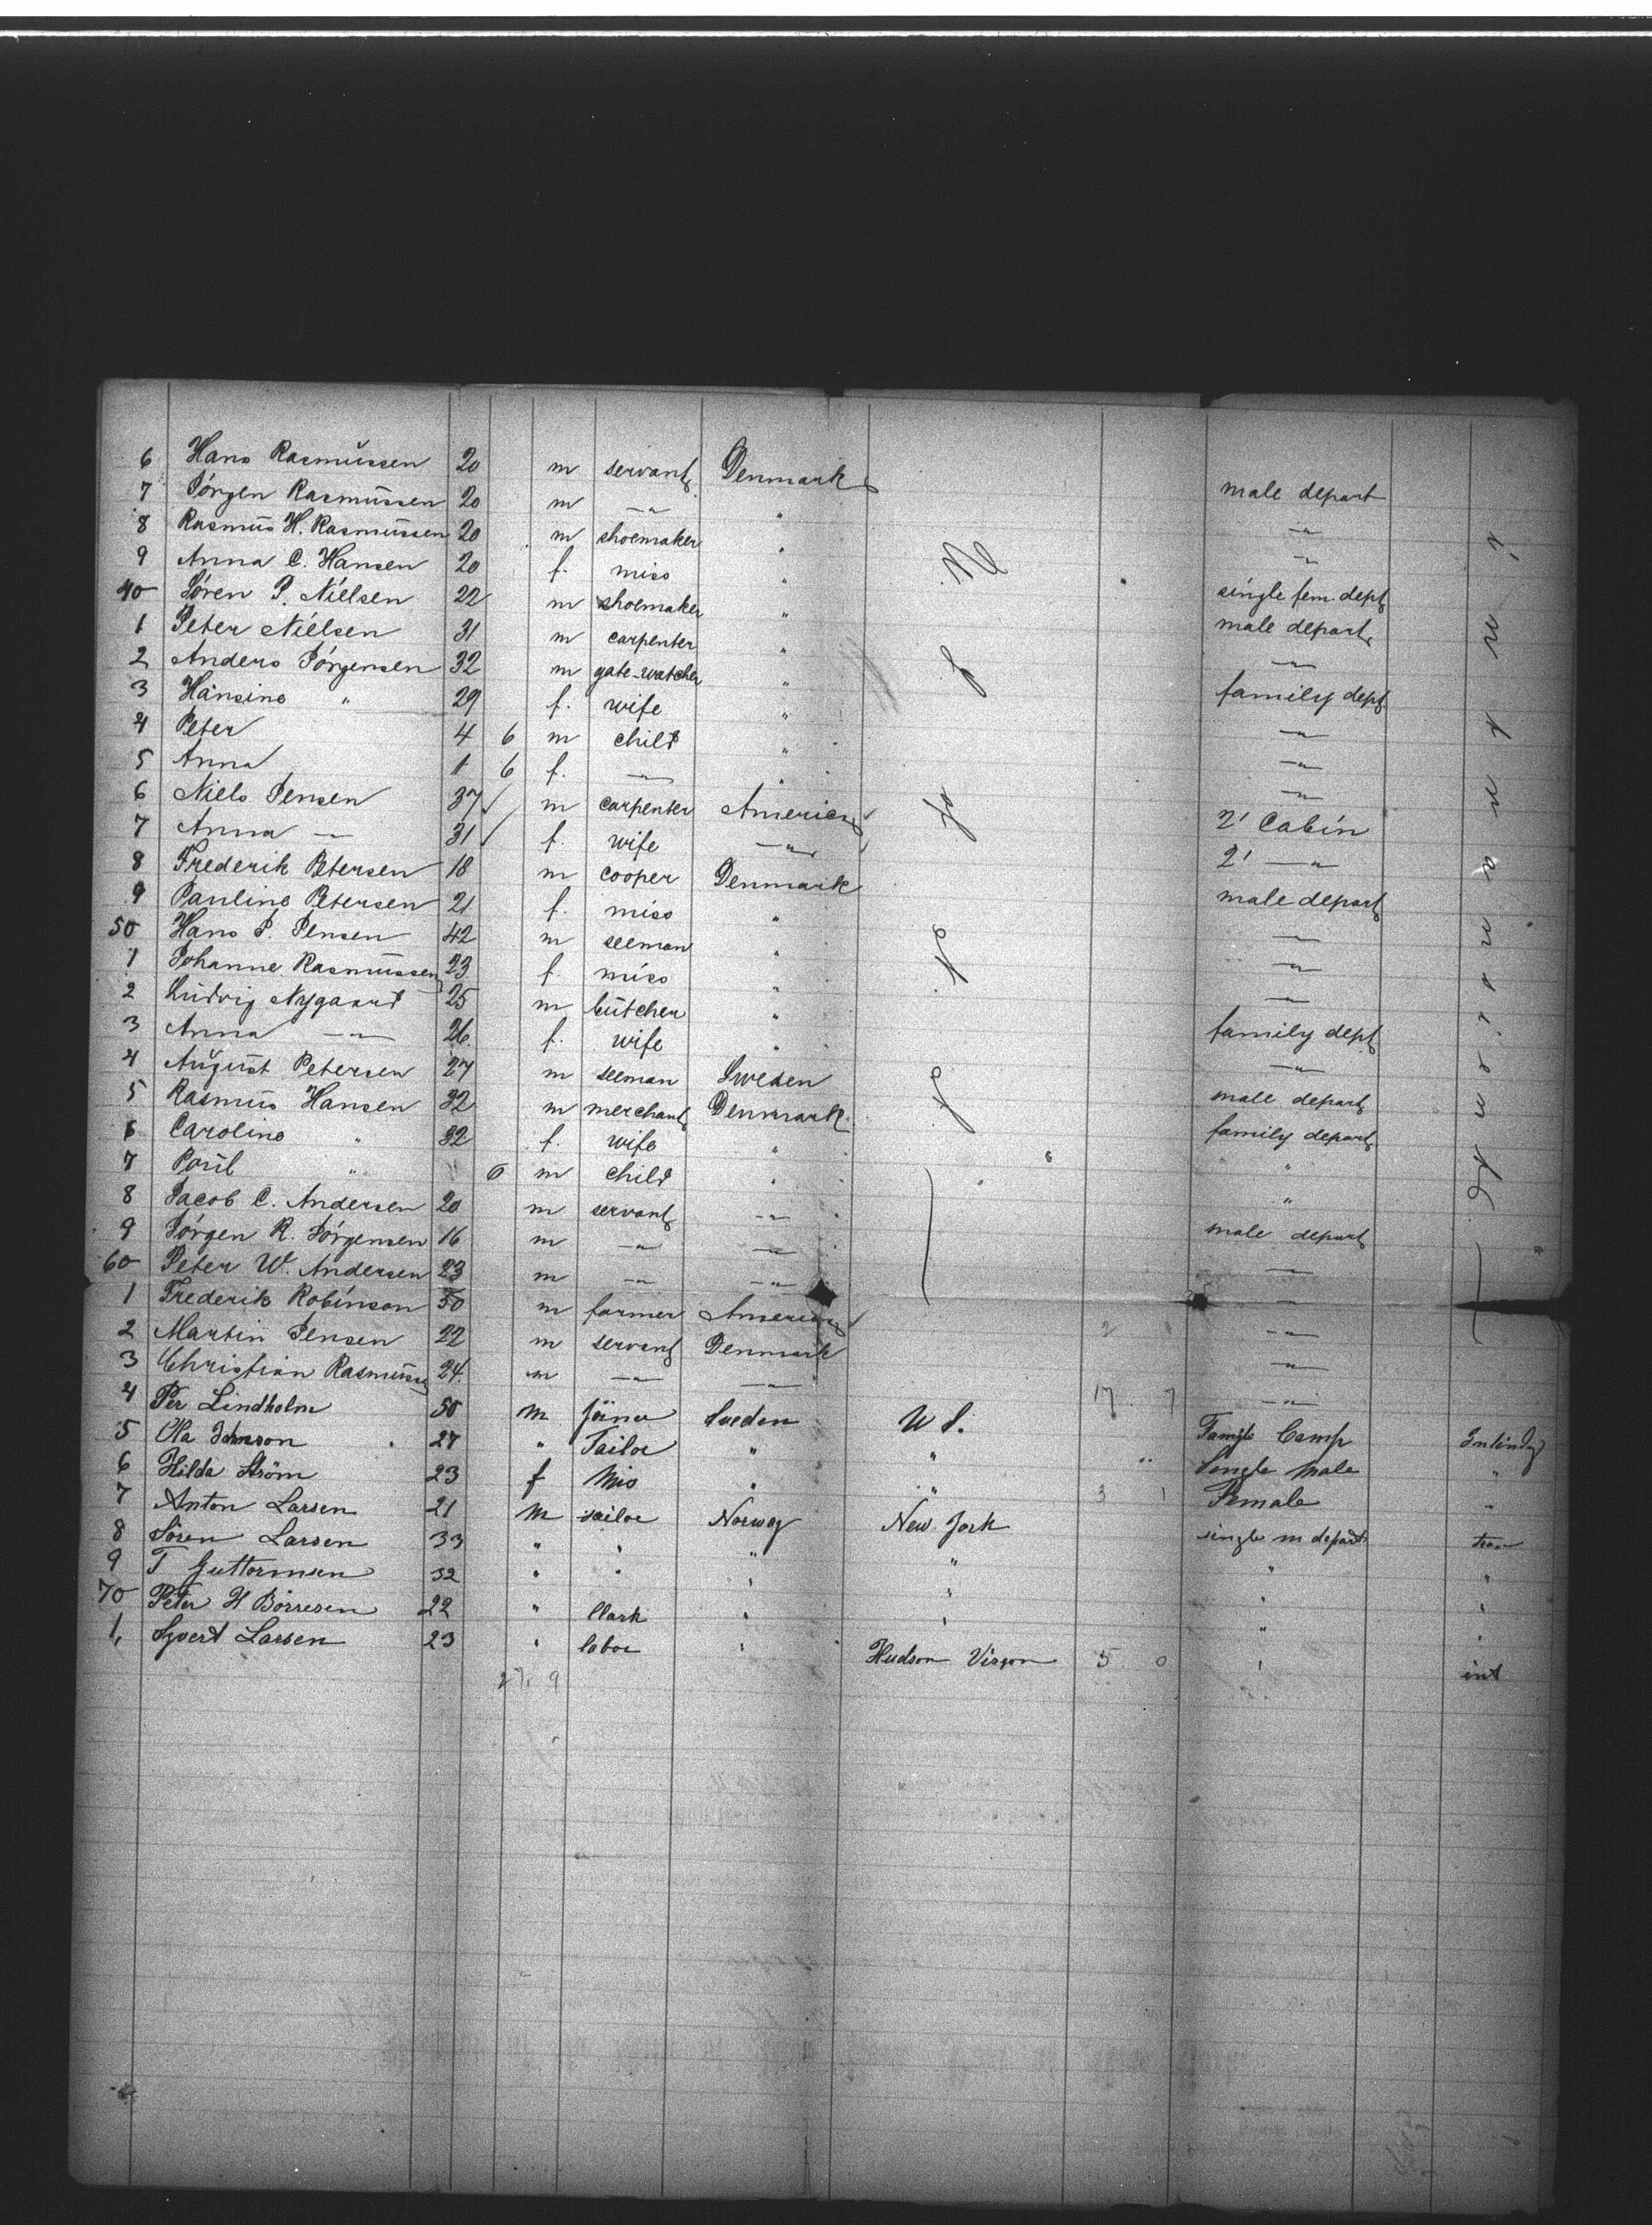 6 Hans Rasmussen 20 m servant Denmark male depart
7 Jörgen Rasmussen 20 m —"— " —"—
8 Rasmus H. Rasmussen 20 m shoemaker " —"—
9 Anna C. Hansen 20 f. miss " single fem. dept
40 Sören P. Nielsen 22 m shoemaker " male depart
1 Peter Nielsen 31 m carpenter " —"—
2 Anders Jörgensen 32 m gate-watcher " family dept
3 Hansine " 29 f. wife " —"—
4 Peter 4 6 m child " —"—
5 Anna 1 6 f. —"— " —"—
6 Niels Jensen 37 m carpenter America 2' Cabin
7 Anna —"— 31 f. wife —"— 2' —"—
8 Frederik Petersen 18 m cooper Denmark male depart
9 Pauline Petersen 21 f. miss " —"—
50 Hans P. Jensen 42 m seeman " —"—
1 Johanne Rasmussen 23 f. miss " —"—
2 Ludvig Nygaard 25 m butcher " family dept
3 Anna —"— 26 f. wife " —"—
4 August Petersen 27 m seeman Sweden male depart
5 Rasmus Hansen 32 m merchant Denmark family depart
6 Caroline " 32 f. wife " "
7 Poul " 6 m child " "
8 Jacob C. Andersen 20 m servant —"— male depart
9 Jörgen R. Jörgensen 16 m —"— —"— —"—
60 Peter W. Andersen 23 m —"— —"— —"—
1 Frederik Robinson 50 m farmer America —"—
2 Martin Jensen 22 m servant Denmark —"—
3 Christian Rasmussen 24. m —"— —"— —"—
4 Per Lindholm 50 m Sweden U S. 17 7 Camp
5 Ola 27 " Tailor " " Single male "
6 Hilda Ström 23 f Mis " " 3 1 Female "
7 Anton Larsen 21 m sailor Norway New York single m depart
8 Sören Larsen 33 " " " " " "
9 T Guttormsen 32 " " " " " "
70 Peter H Börresen 22 " Clark " " " "
1, Larsen 23 " labor " Hudson 5 0 " int
27. 9